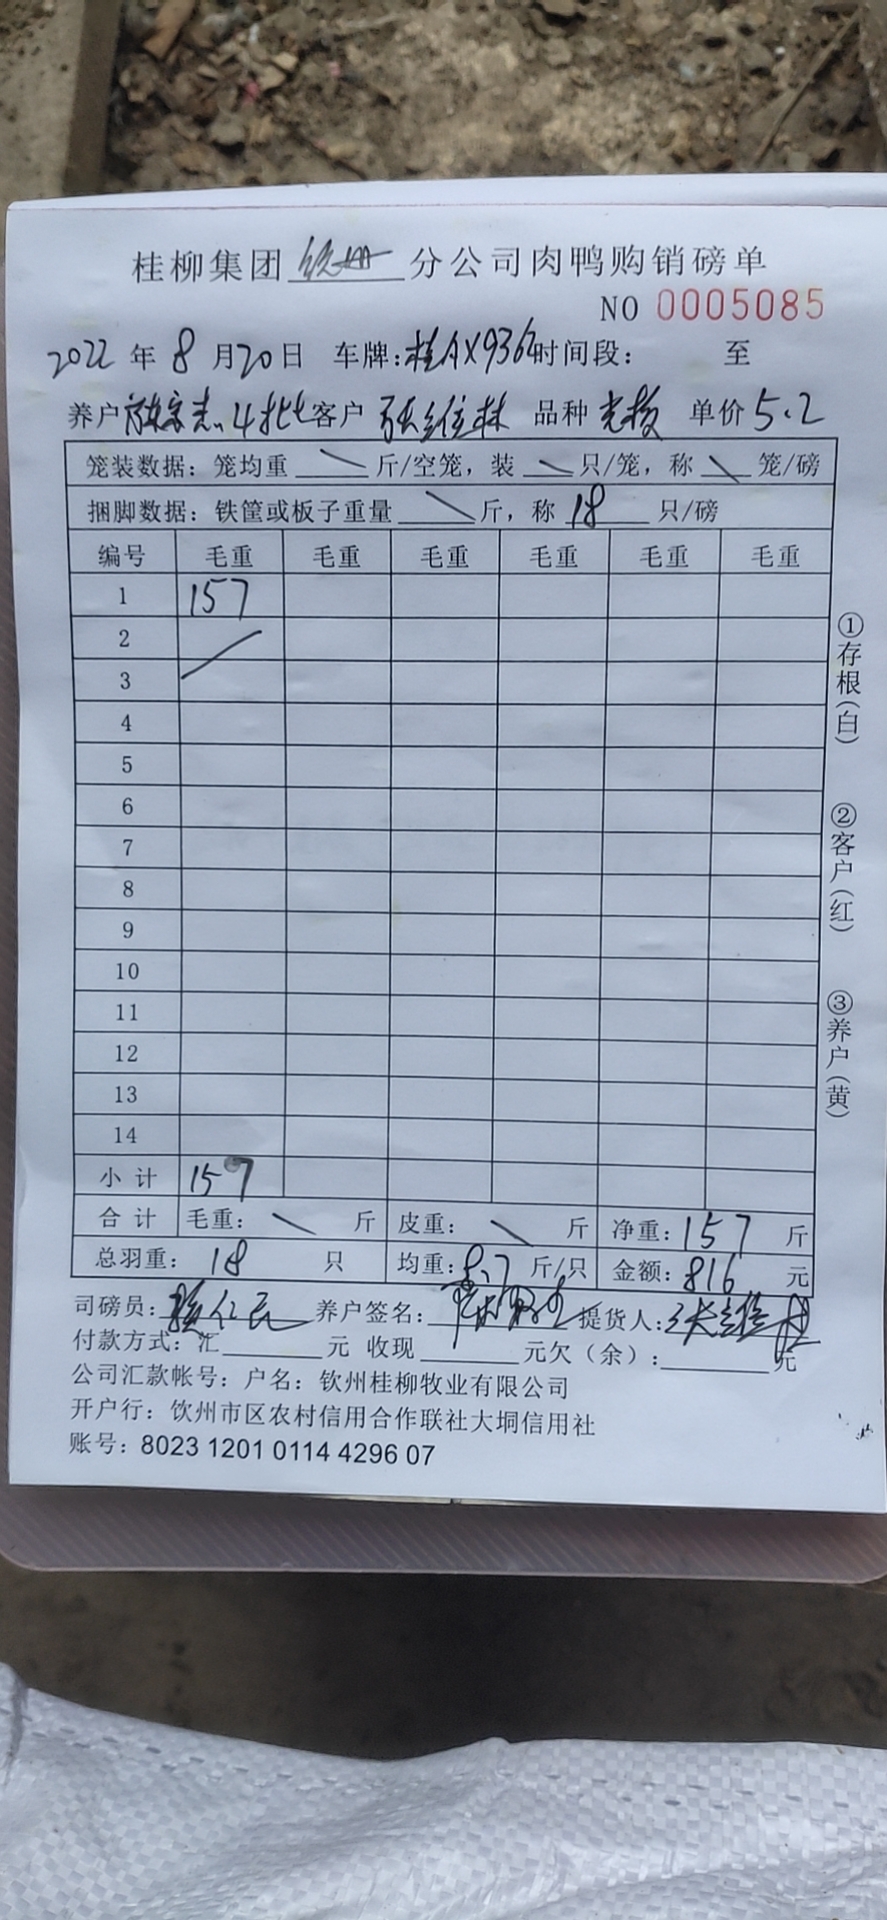 桂柳集团 钦州 分公司肉鸭购销磅单
NO 0005085
2022 年 8 月 20 日 车牌:桂AX936 时间段: 至
养户 4批 客户 张维林 品种 单价 5.2
笼装数据: 笼均重 斤/空笼, 装 只/笼, 称 笼/磅
捆脚数据: 铁筐或板子重量 斤, 称 18 只/磅
编号 毛重 毛重 毛重 毛重 毛重 毛重
1 157
2
3
4
5
6
7
8
9
10
11
12
13
14
小计 157
合计 毛重: 斤 皮重: 斤 净重: 157 斤
总羽重: 18 只 均重: 8.7 斤/只 金额: 816 元
司磅员: 养户签名: 提货人: 张维林
付款方式: 汇 元 收现 元欠（余）: 元
公司汇款帐号: 户名: 钦州桂柳牧业有限公司
开户行: 钦州市区农村信用合作联社大垌信用社
账号: 8023 1201 0114 4296 07
①存根（白）
②客户（红）
③养户（黄）